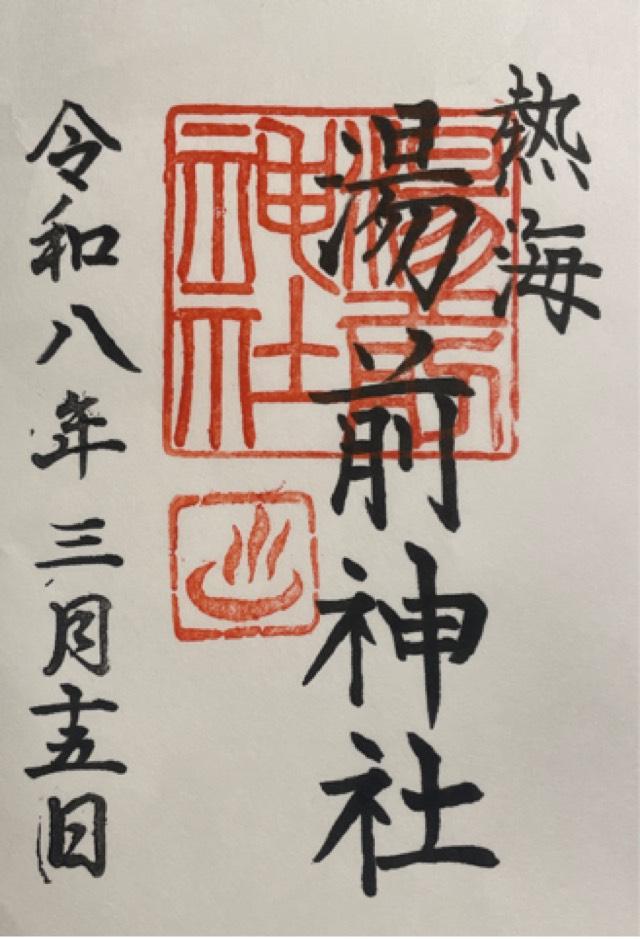 熱海
湯前神社
湯前神社
令和八年三月十五日